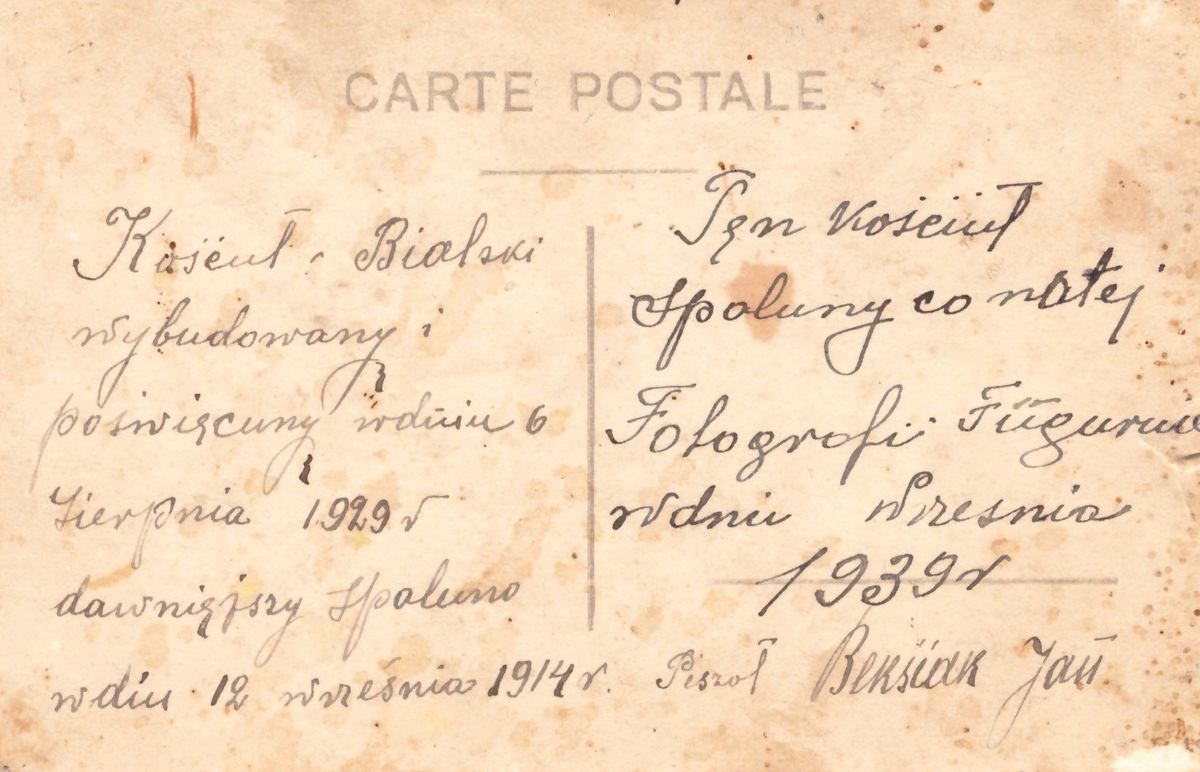 CARTE POSTALE
Kośćuł Bialski
wybudowany i
poświęcuny wdńiu 6
Sierpnia 1929 r
dawnięjszy Spaluno
wdiu 12 września 1914 r.
Tęn Kośćiuł
Spaluny co natej
Fotografi Fiiguruie
wdniu Wrzesnia
1939 r
Piszoł Beksiak Jań